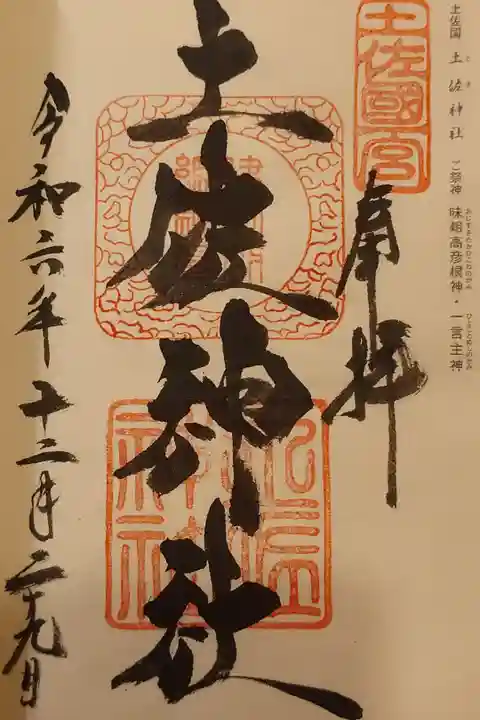 土佐国 土佐神社 ご祭神 味鋤高彦根神・一言主神
とさ
あじすきたかひこねのかみ
ひとことぬしのかみ
土佐國宮
奉拝
土佐神社
土佐神社
令和六年十二月二十九日